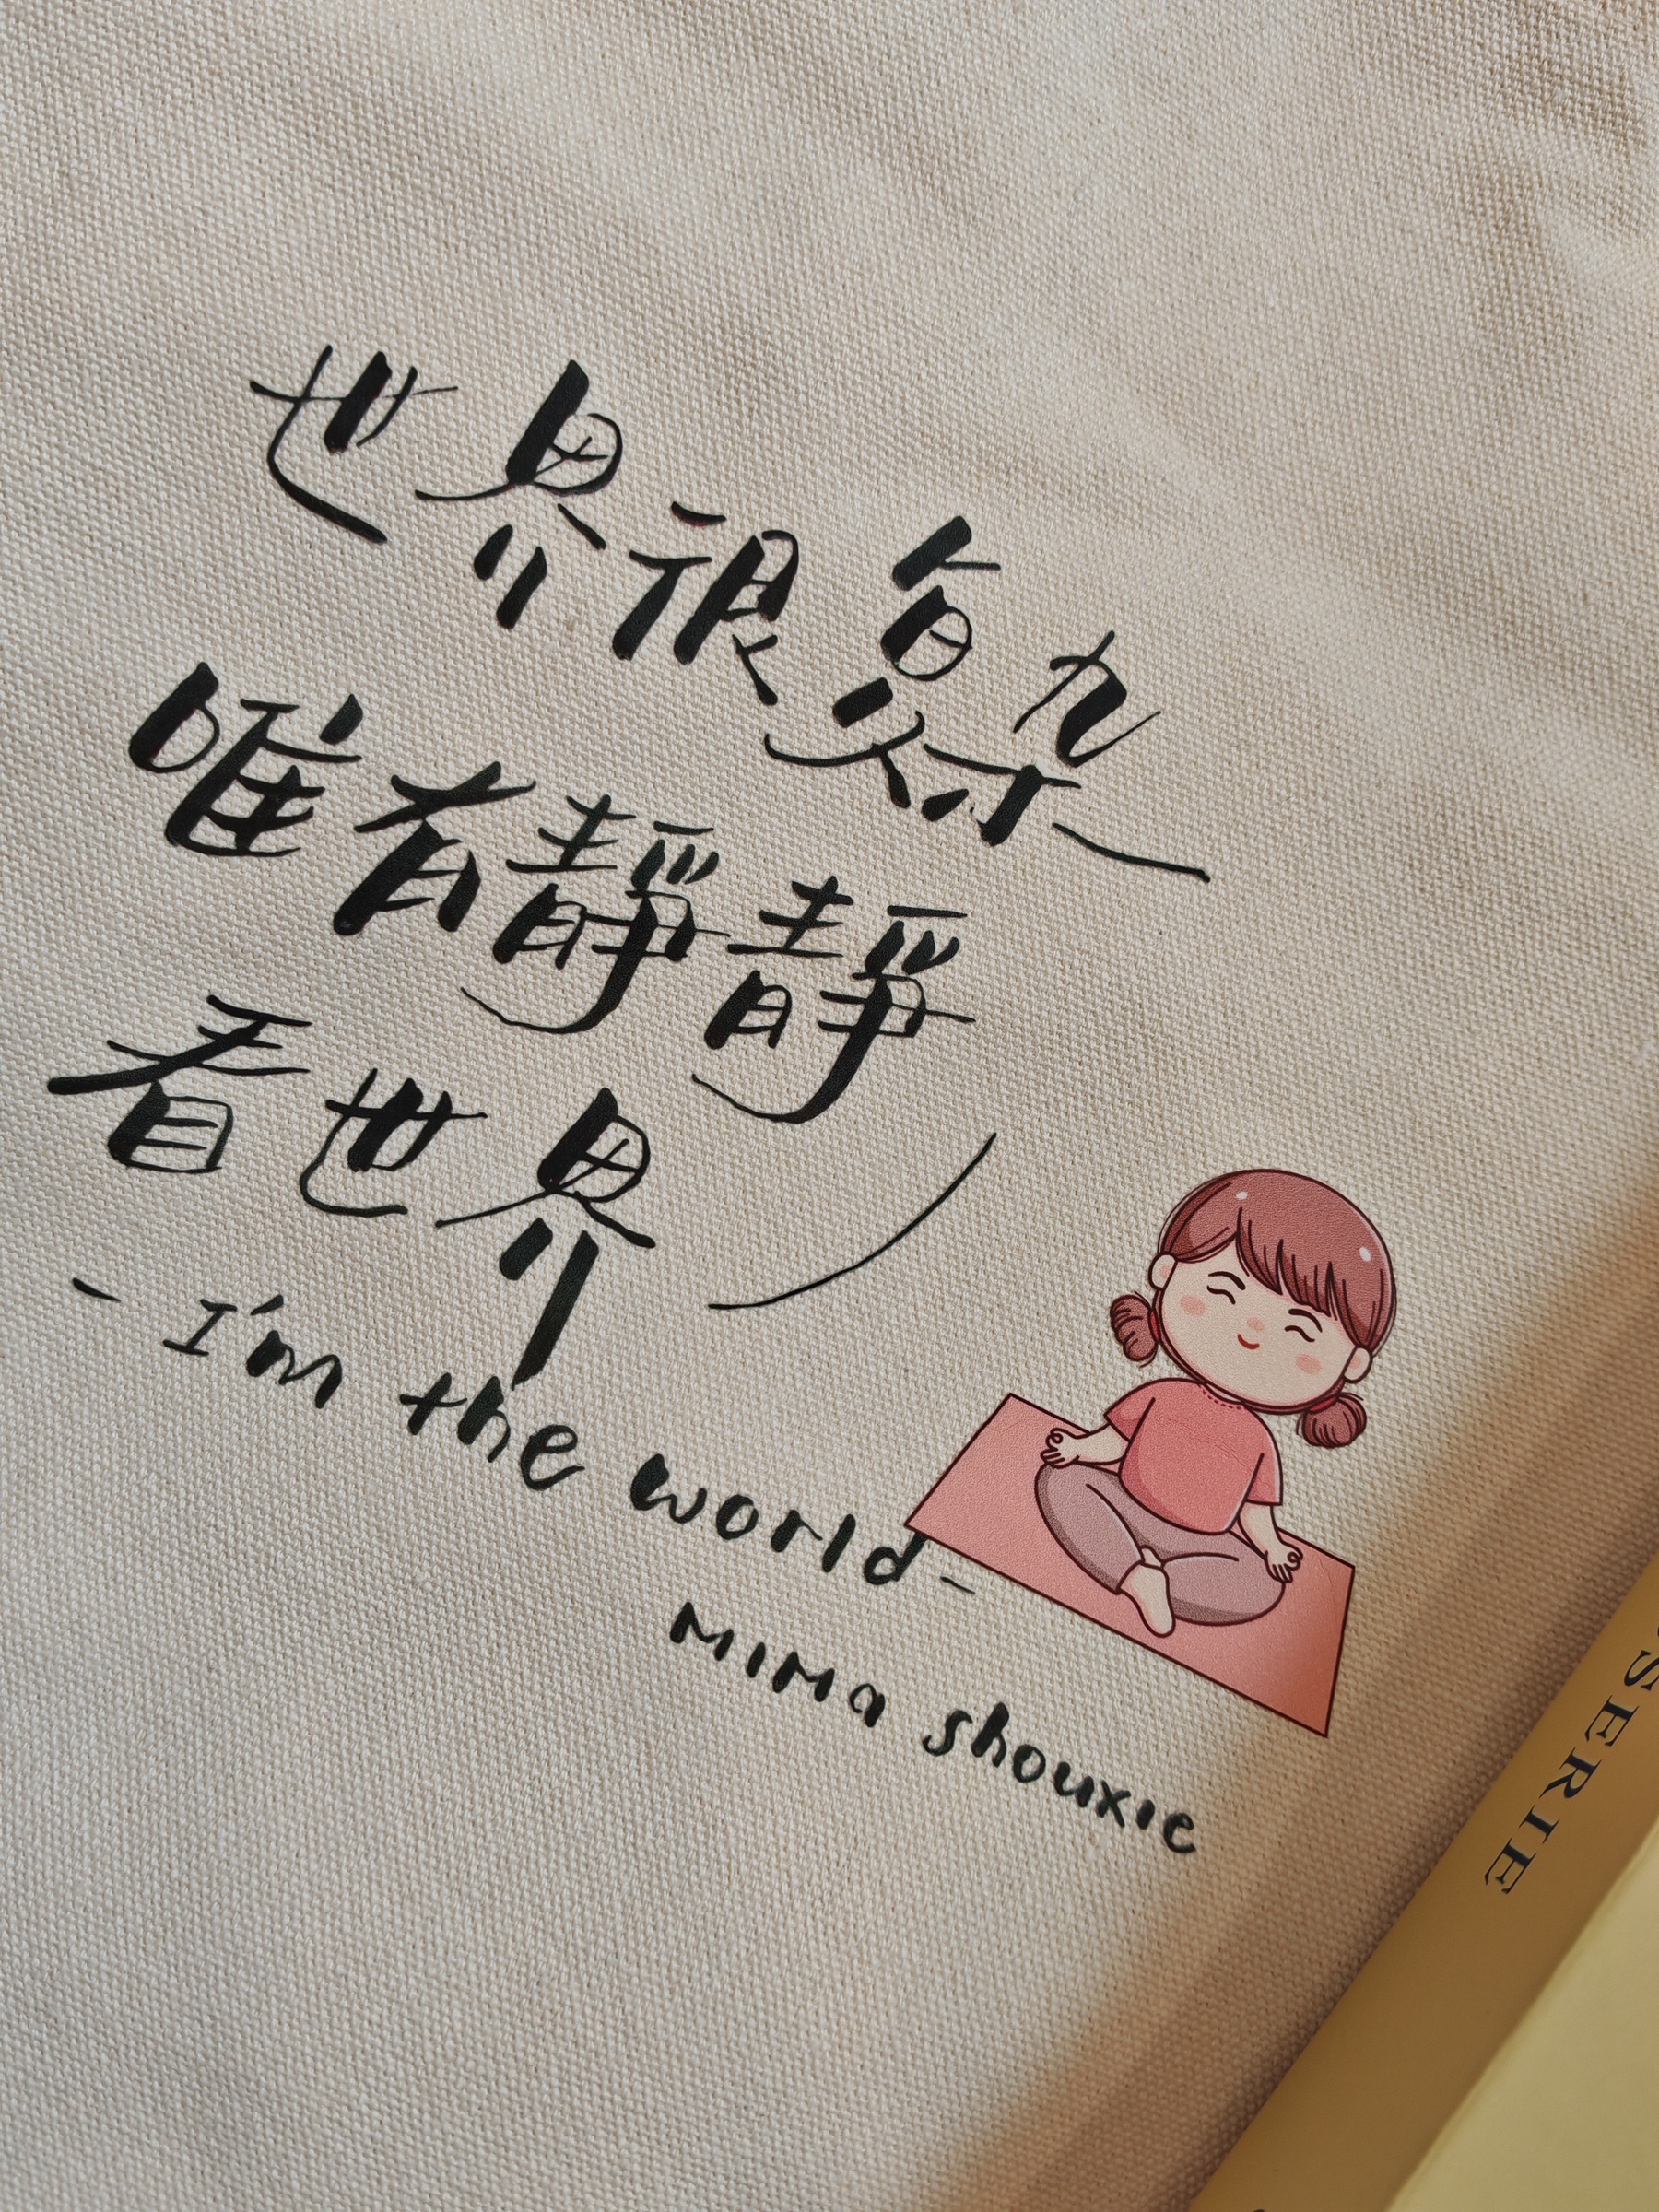 世界很复杂
唯有靜靜
看世界
- I'm the world -
MIMa shouxie
SERIE